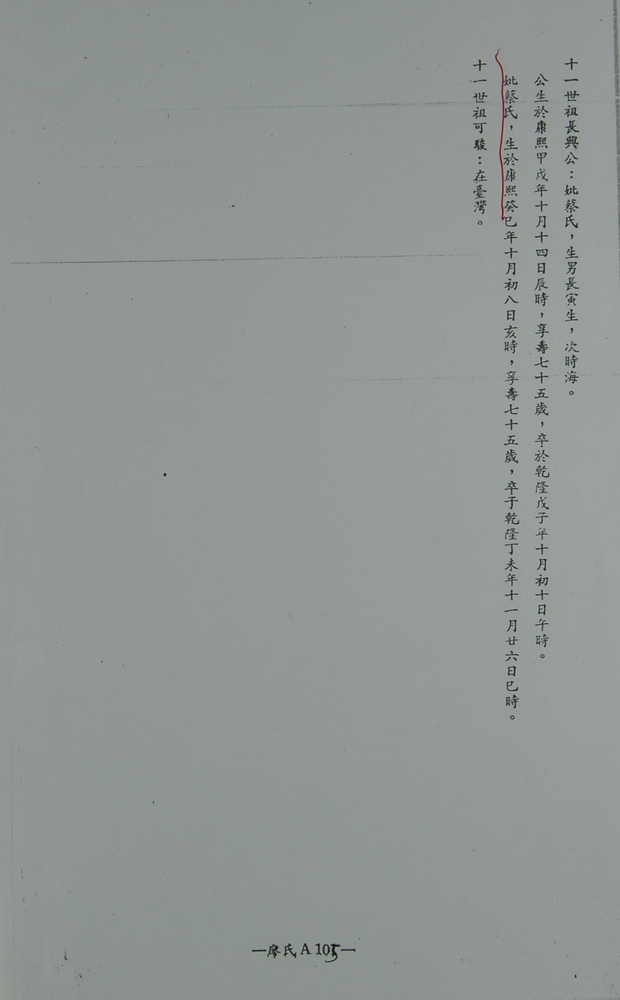 十一世祖長興公：妣蔡氏，生男長寅生，次時海。
公生於康熙甲戌年十月十四日辰時，享壽七十五歲，卒於乾隆戊子年十月初十日午時。
妣蔡氏，生於康熙癸巳年十月初八日亥時，享壽七十五歲，卒于乾隆丁未年十一月廿六日巳時。
十一世祖可駿：在臺灣。
—廖氏 A 105—